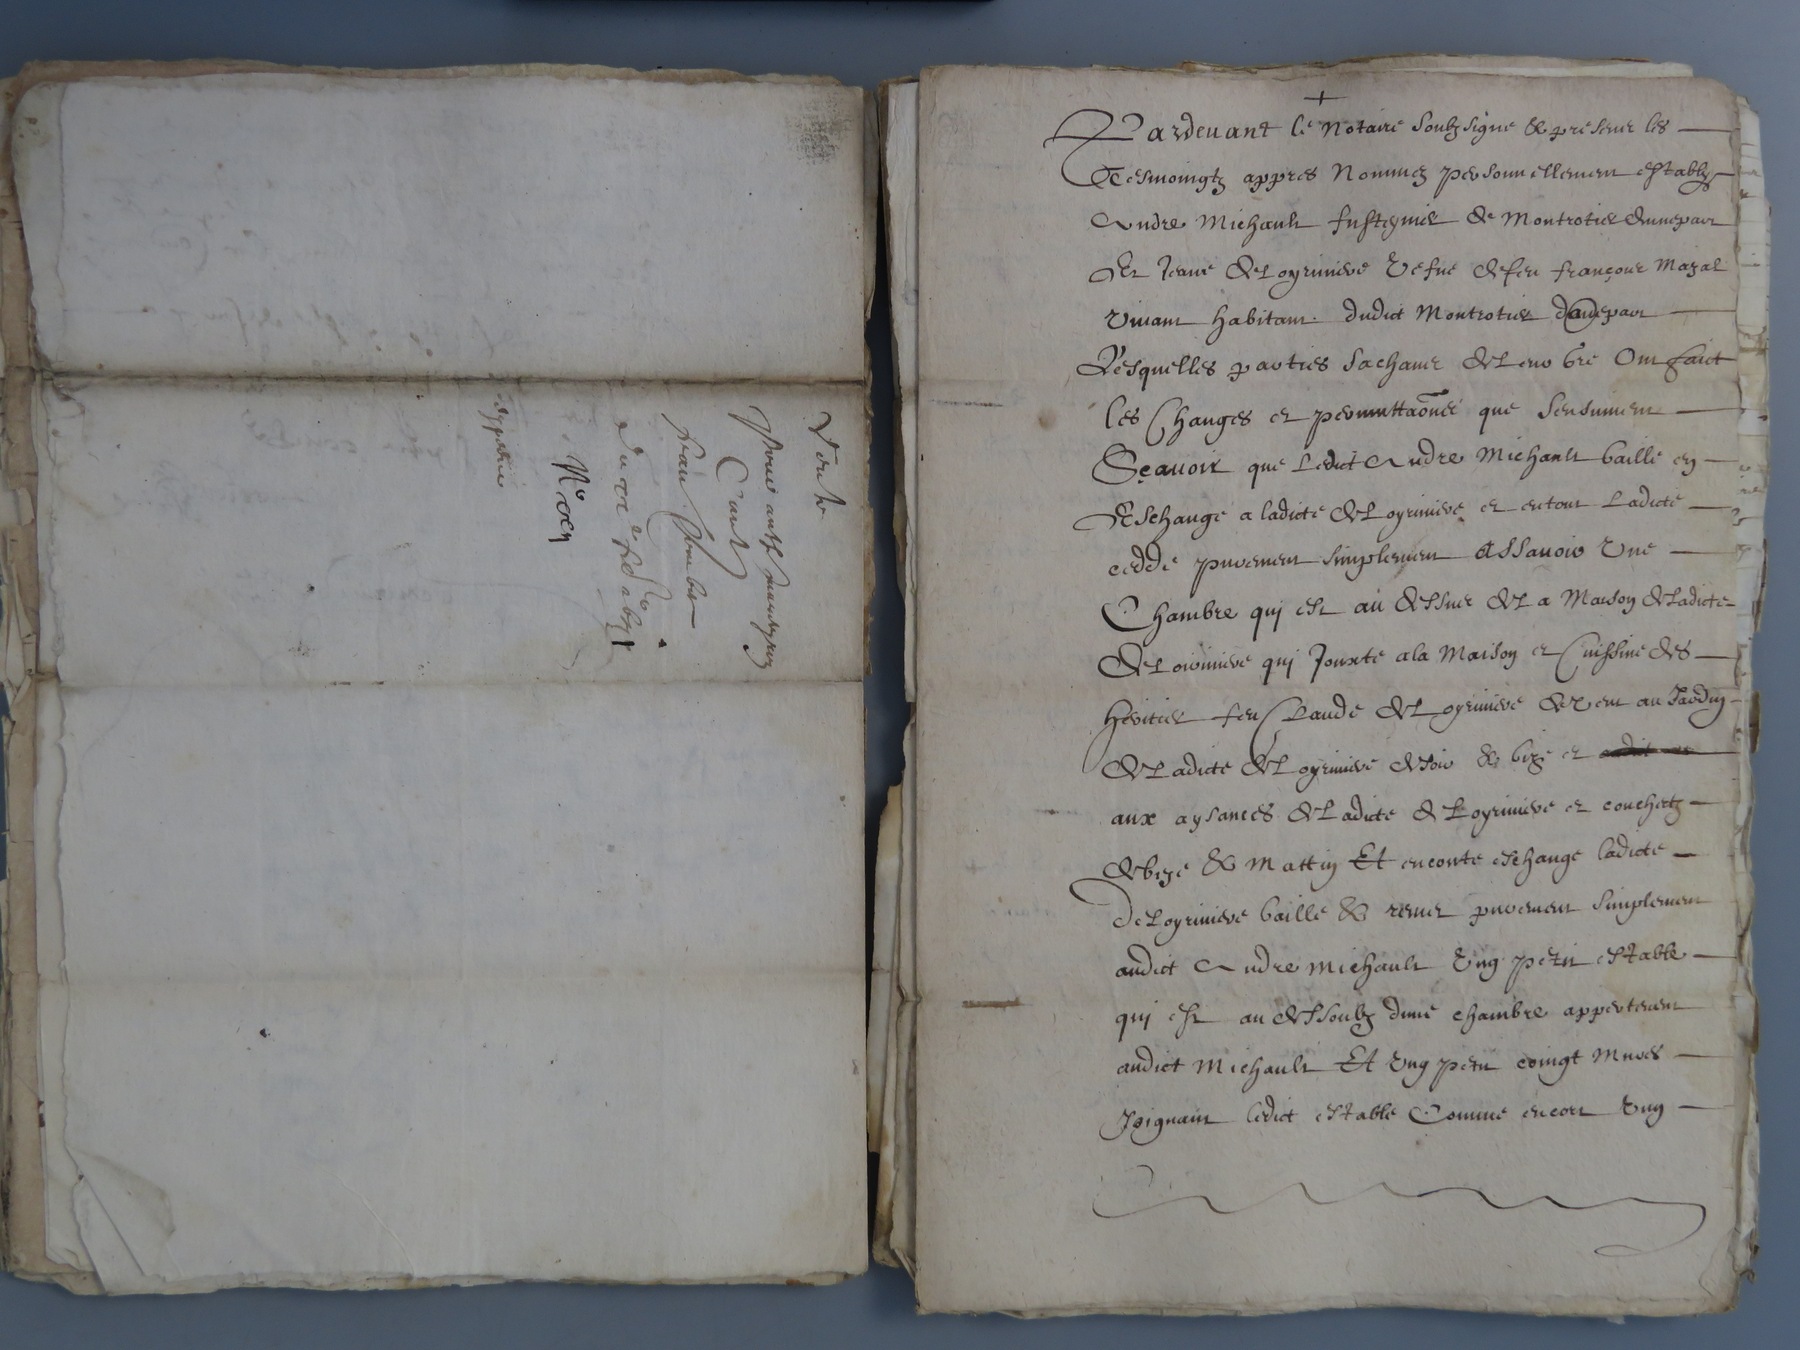 Vente
pour anth
Contre
expedie
+
Pardevant le Notaire soubzsigne & presence les
Tesmoingtz appres Nommez personnellement establys
Andre Michault fusteynier de Montrotier d'unepart
Et Jeane deLoyriniere Vefue defeu françoys Mazal
Viuant habitant dudict Montrotier dautrepart
Lesquelles parties sachant deLeur gre Ont faict
les Changes et permuttaônes que sensuiuent
Sçauoir que Ledict Andre Michault baille en
Eschange a ladicte deLoyriniere et en tout Ladicte
cedde purement simplement Assauoir Vne
Chambre qui est au dessus deLa Maison deLadicte
deLoiriniere qui Jouxte ala Maison et Cuissine des
heritier feu Claude deLoyriniere de vent au Jardin
deLadicte deLoyriniere de soir & bize et
aux aysances deLadicte deLoyriniere et couchetz
de bize & Mattin Et enconte eschange ladicte
deLoyriniere baille & remet purement simplement
audict Andre Michault Vng petit estable
qui est au dessoubz dune chambre appertenent
audict Michault Et vng petit coingt Mures
Joignant ledict estable Comme encore Vng